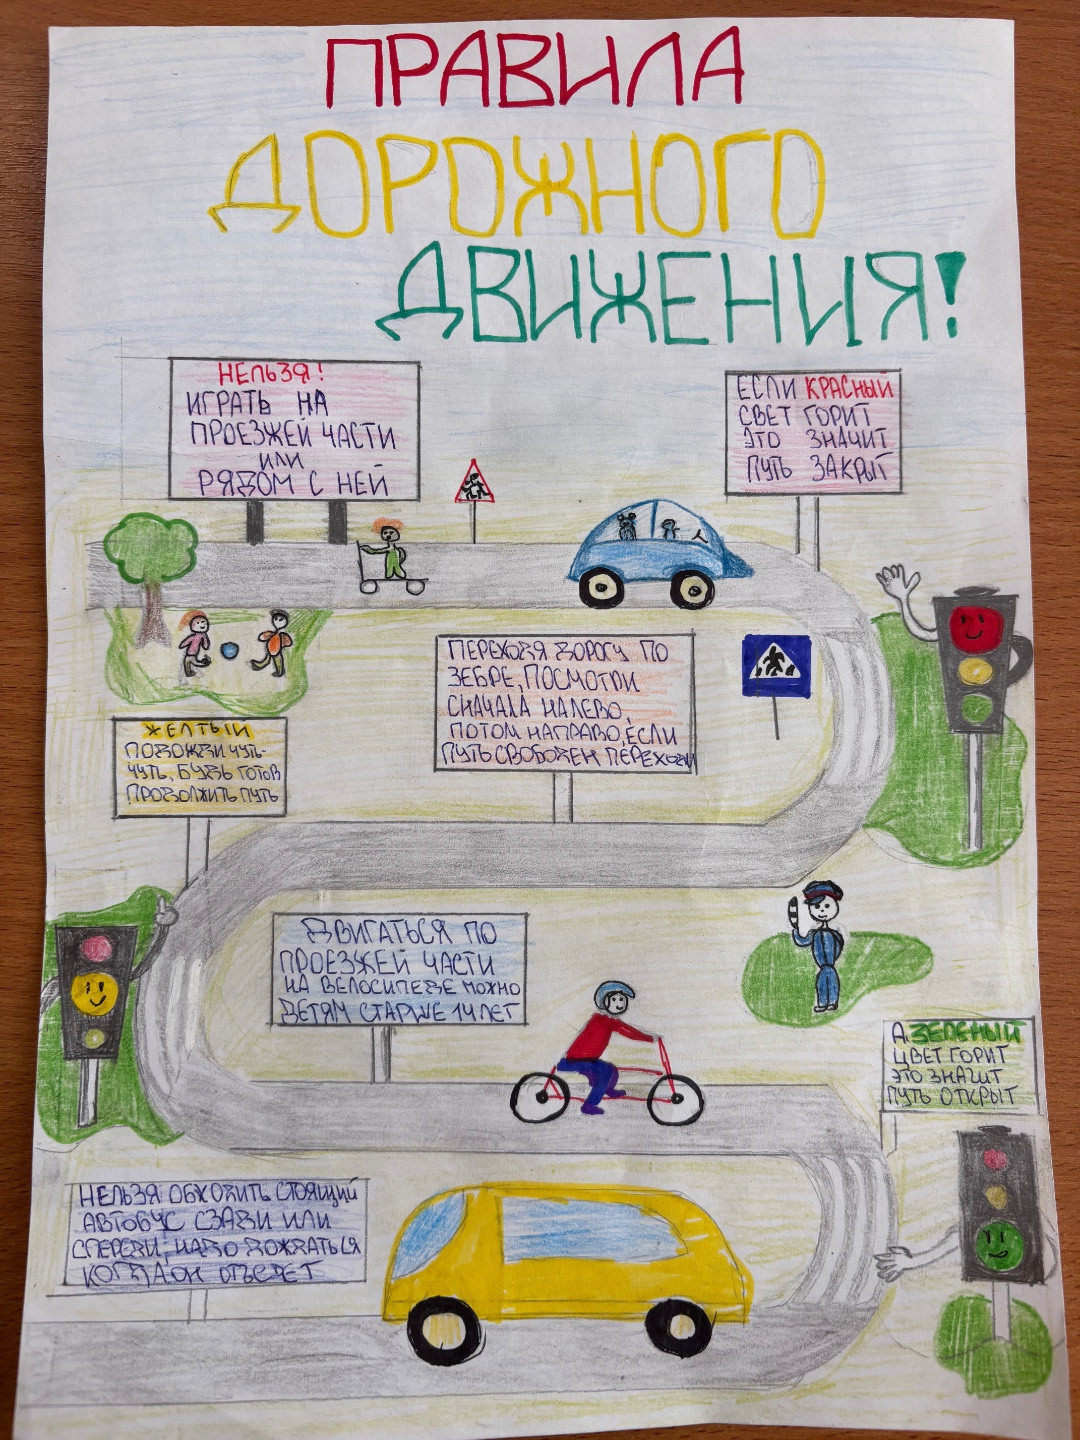 ПРАВИЛА
ДОРОЖНОГО
ДВИЖЕНИЯ!
НЕЛЬЗЯ!
ИГРАТЬ НА
ПРОЕЗЖЕЙ ЧАСТИ
ИЛИ
РЯДОМ С НЕЙ
ЕСЛИ КРАСНЫЙ
СВЕТ ГОРИТ
ЭТО ЗНАЧИТ
ПУТЬ ЗАКРЫТ
ПЕРЕХОДЯ ДОРОГУ ПО
ЗЕБРЕ, ПОСМОТРИ
СНАЧАЛА НАЛЕВО,
ПОТОМ НАПРАВО, ЕСЛИ
ПУТЬ СВОБОДЕН ПЕРЕХОДИ
ЖЕЛТЫЙ
ПОДОЖДИ ЧУТЬ-
ЧУТЬ, БУДЬ ГОТОВ
ПРОДОЛЖИТЬ ПУТЬ
ДВИГАТЬСЯ ПО
ПРОЕЗЖЕЙ ЧАСТИ
НА ВЕЛОСИПЕДЕ МОЖНО
ДЕТЯМ СТАРШЕ 14 ЛЕТ
А ЗЕЛЕНЫЙ
ЦВЕТ ГОРИТ
ЭТО ЗНАЧИТ
ПУТЬ ОТКРЫТ
НЕЛЬЗЯ ОБХОДИТЬ СТОЯЩИЙ
АВТОБУС СЗАДИ ИЛИ
СПЕРЕДИ, НАДО ДОЖДАТЬСЯ
КОГДА ОН ОТЪЕДЕТ